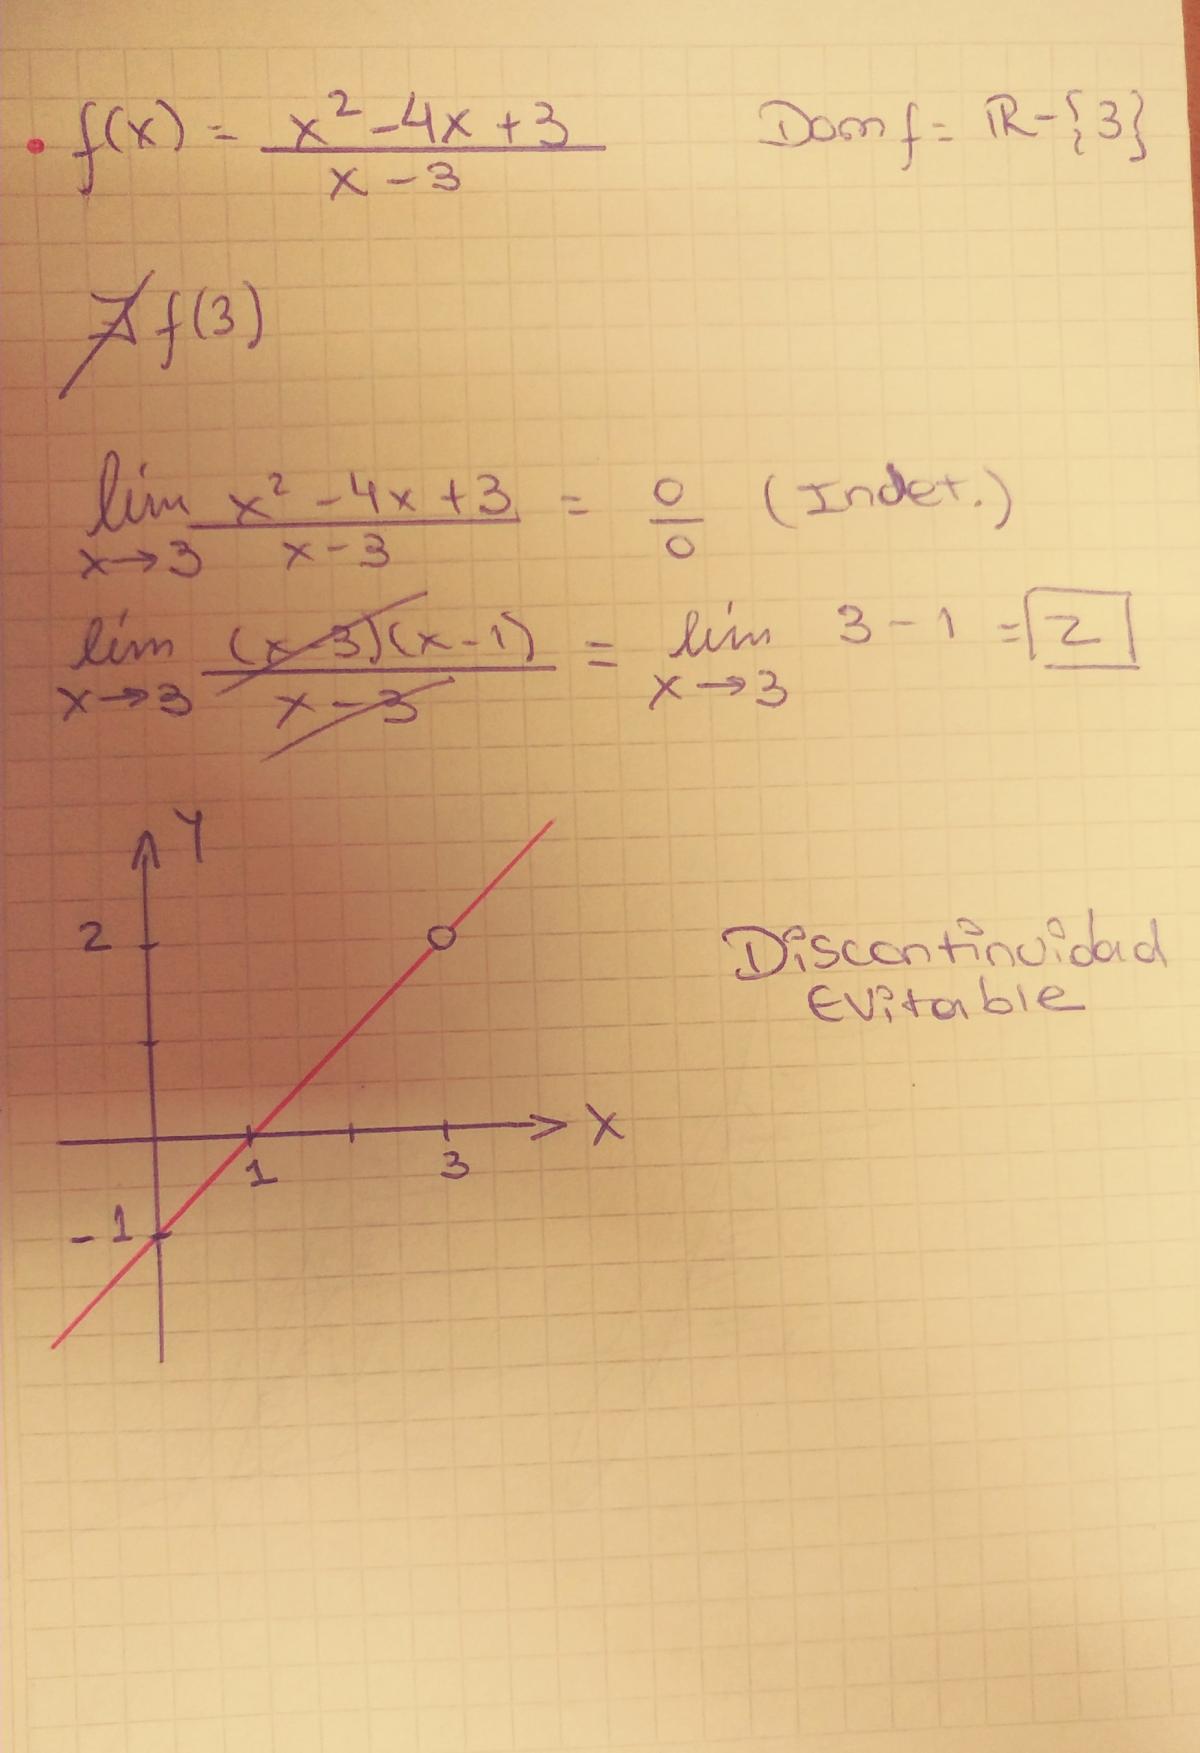 f(x) = (x² - 4x + 3)/(x - 3)    Dom f = ℝ - {3}
∄ f(3)
lím x→3 (x² - 4x + 3)/(x - 3) = 0/0 (Indet.)
lím x→3 (x - 3)(x - 1)/(x - 3) = lím x→3 3 - 1 = 2
Y
2
Discontinuidad
Evitable
X
1 3
-1